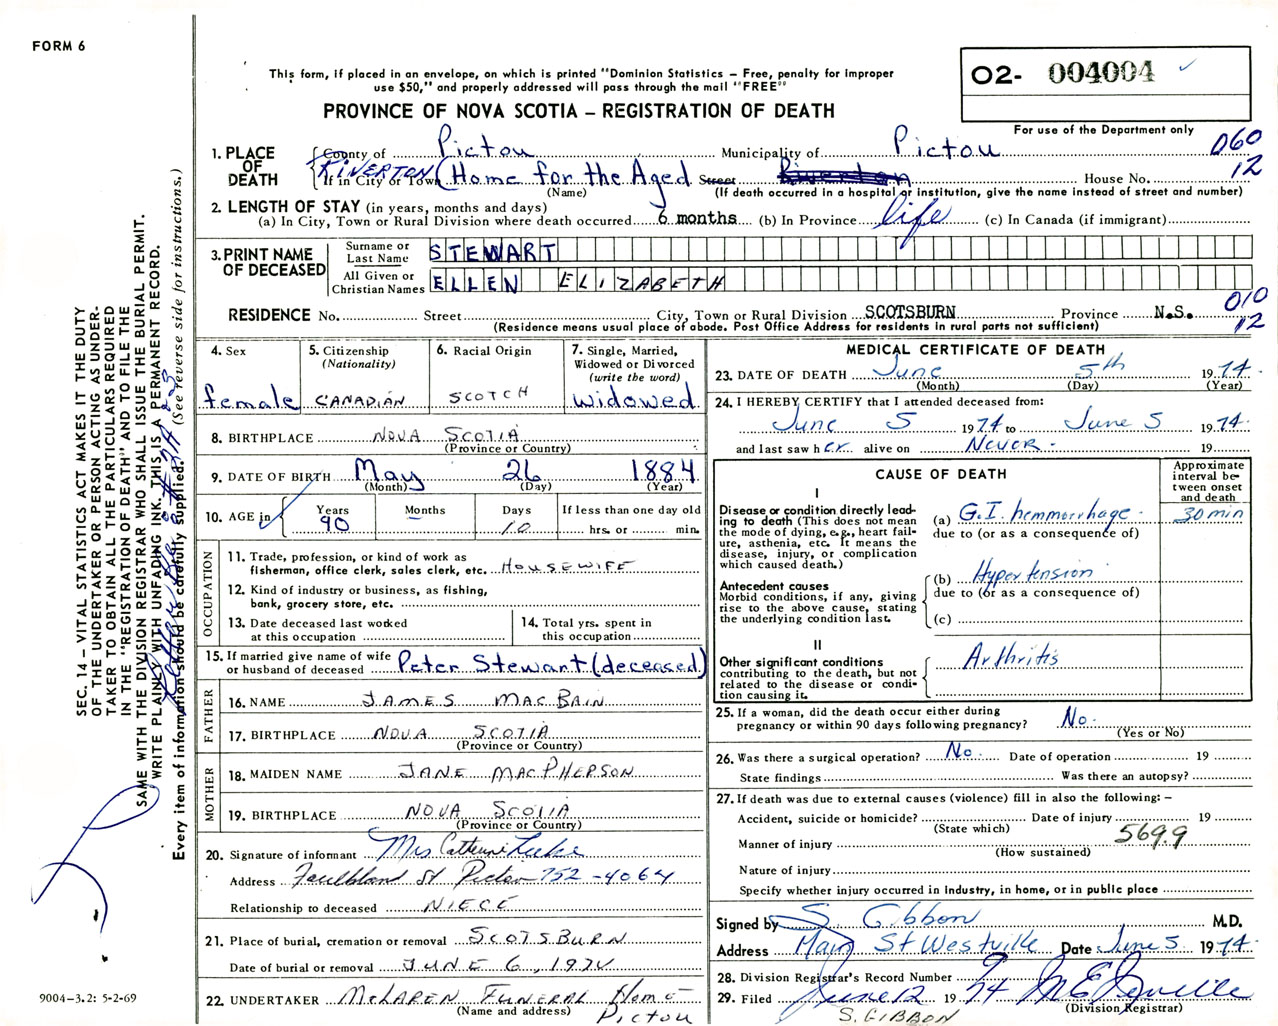 FORM 6
This form, if placed in an envelope, on which is printed "Dominion Statistics – Free, penalty for improper
use $50," and properly addressed will pass through the mail "FREE"
PROVINCE OF NOVA SCOTIA – REGISTRATION OF DEATH
O2- 004004 ✓
For use of the Department only
060
12
1. PLACE OF DEATH
County of Pictou Municipality of Pictou
If in City or Town RIVERTON (Home for the Aged Street Riverton House No.
(Name) (If death occurred in a hospital or institution, give the name instead of street and number)
2. LENGTH OF STAY (in years, months and days)
(a) In City, Town or Rural Division where death occurred 6 months (b) In Province life (c) In Canada (if immigrant)
3. PRINT NAME OF DECEASED
Surname or Last Name STEWART
All Given or Christian Names ELLEN ELIZABETH
RESIDENCE No. Street City, Town or Rural Division SCOTSBURN Province N.S.
(Residence means usual place of abode. Post Office Address for residents in rural parts not sufficient)
010
12
4. Sex
female
5. Citizenship
(Nationality)
CANADIAN
6. Racial Origin
SCOTCH
7. Single, Married,
Widowed or Divorced
(write the word)
widowed
8. BIRTHPLACE NOVA SCOTIA
(Province or Country)
9. DATE OF BIRTH May 26 1884
(Month) (Day) (Year)
10. AGE in
Years 90
Months -
Days 10
If less than one day old
hrs. or min.
OCCUPATION
11. Trade, profession, or kind of work as
fisherman, office clerk, sales clerk, etc. HOUSEWIFE
12. Kind of industry or business, as fishing,
bank, grocery store, etc.
13. Date deceased last worked
at this occupation
14. Total yrs. spent in
this occupation
15. If married give name of wife
or husband of deceased Peter Stewart (deceased)
FATHER
16. NAME JAMES MACBAIN
17. BIRTHPLACE NOVA SCOTIA
(Province or Country)
MOTHER
18. MAIDEN NAME JANE MACPHERSON
19. BIRTHPLACE NOVA SCOTIA
(Province or Country)
20. Signature of informant Mrs Catherine
Address St Pictou 752-4064
Relationship to deceased NIECE
21. Place of burial, cremation or removal SCOTSBURN
Date of burial or removal JUNE 6, 1974
22. UNDERTAKER McLAREN FUNERAL Home
(Name and address) Pictou
MEDICAL CERTIFICATE OF DEATH
23. DATE OF DEATH June 5th 1974
(Month) (Day) (Year)
24. I HEREBY CERTIFY that I attended deceased from:
June 5 1974 to June 5 1974
and last saw her alive on Never 19
CAUSE OF DEATH
Approximate
interval be-
tween onset
and death
I
Disease or condition directly lead-
ing to death (This does not mean
the mode of dying, e.g., heart fail-
ure, asthenia, etc. It means the
disease, injury, or complication
which caused death.)
(a) G.I. hemmorrhage 30 min
due to (or as a consequence of)
Antecedent causes
Morbid conditions, if any, giving
rise to the above cause, stating
the underlying condition last.
(b) Hypertension
due to (or as a consequence of)
(c)
II
Other significant conditions
contributing to the death, but not
related to the disease or condi-
tion causing it.
Arthritis
25. If a woman, did the death occur either during
pregnancy or within 90 days following pregnancy? No.
(Yes or No)
26. Was there a surgical operation? No. Date of operation 19
State findings Was there an autopsy?
27. If death was due to external causes (violence) fill in also the following: –
Accident, suicide or homicide? Date of injury 19
(State which)
569.9
Manner of injury
(How sustained)
Nature of injury
Specify whether injury occurred in industry, in home, or in public place
Signed by S. Gibbon M.D.
Address Main St Westville Date June 5 1974
28. Division Registrar's Record Number 9
29. Filed June 12 1974
(Division Registrar)
S. GIBBON
SEC. 14 – VITAL STATISTICS ACT MAKES IT THE DUTY
OF THE UNDERTAKER OR PERSON ACTING AS UNDER-
TAKER TO OBTAIN ALL THE PARTICULARS REQUIRED
IN THE "REGISTRATION OF DEATH" AND TO FILE THE
SAME WITH THE DIVISION REGISTRAR WHO SHALL ISSUE THE BURIAL PERMIT.
WRITE PLAINLY WITH UNFADING INK. THIS IS A PERMANENT RECORD.
Every item of information should be carefully supplied. (See reverse side for instructions.)
9004-3.2: 5-2-69